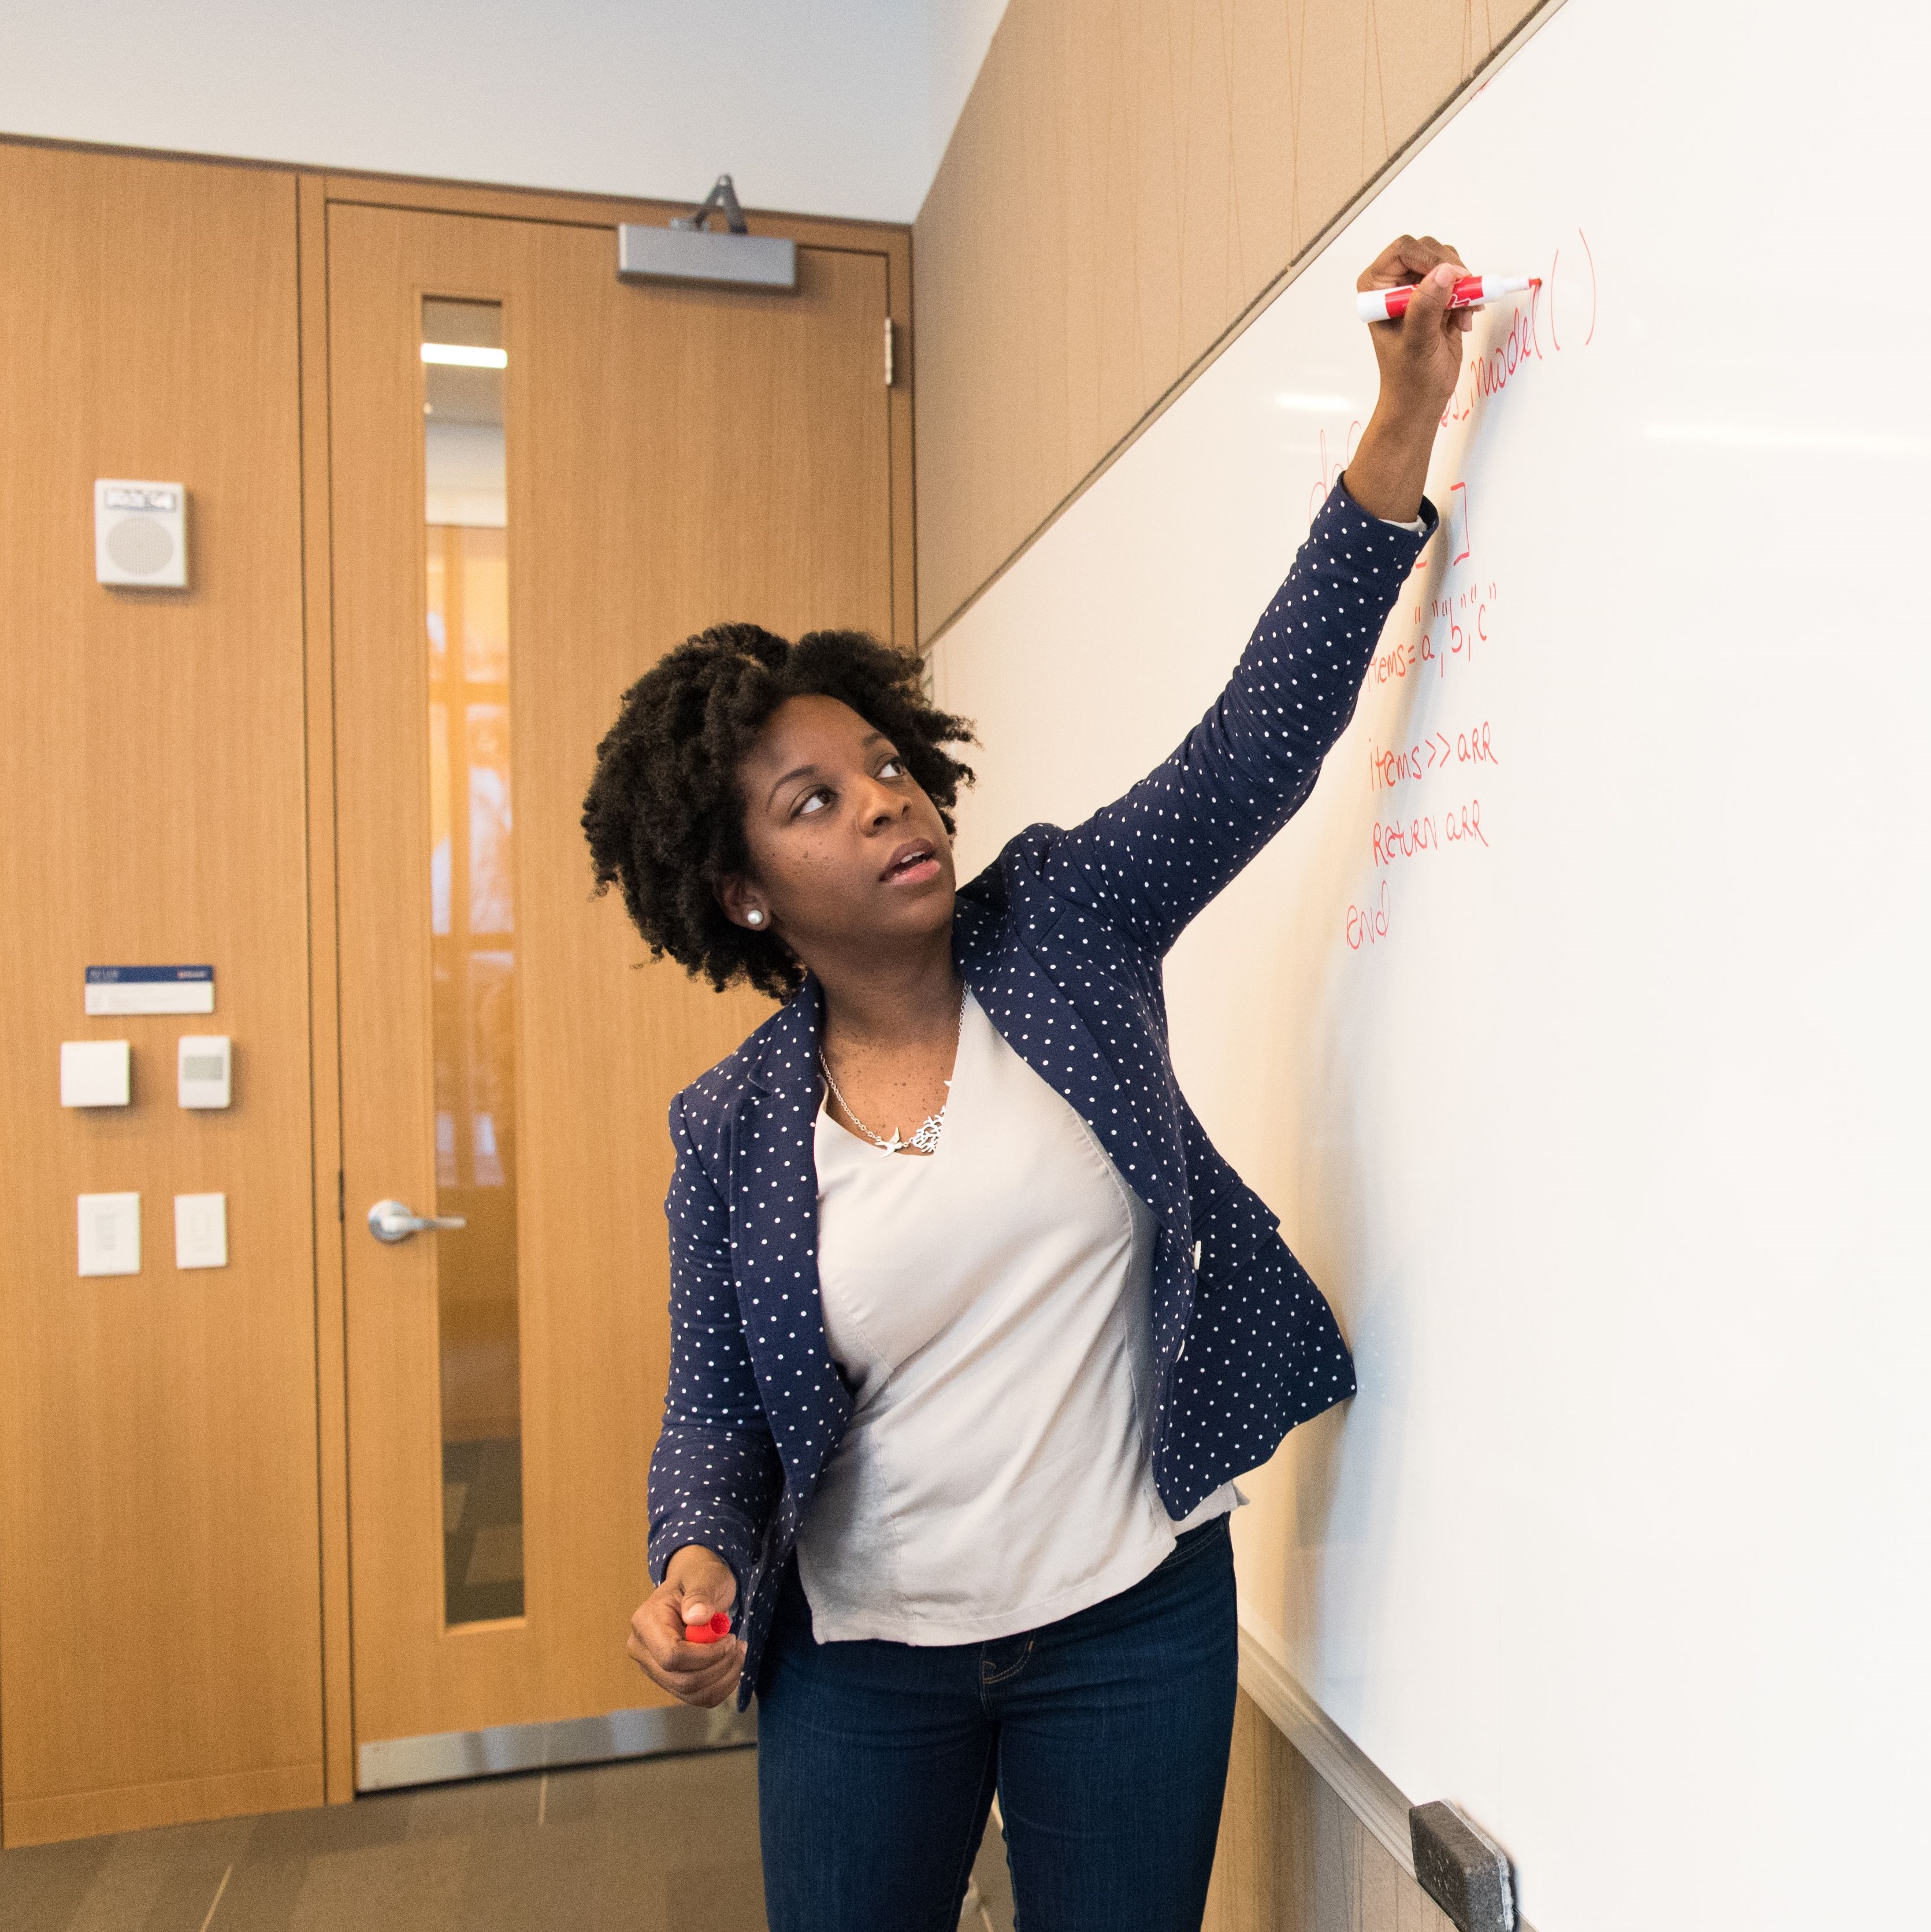 _model()
]
items="a","b","c"
items>>aRR
Return aRR
end